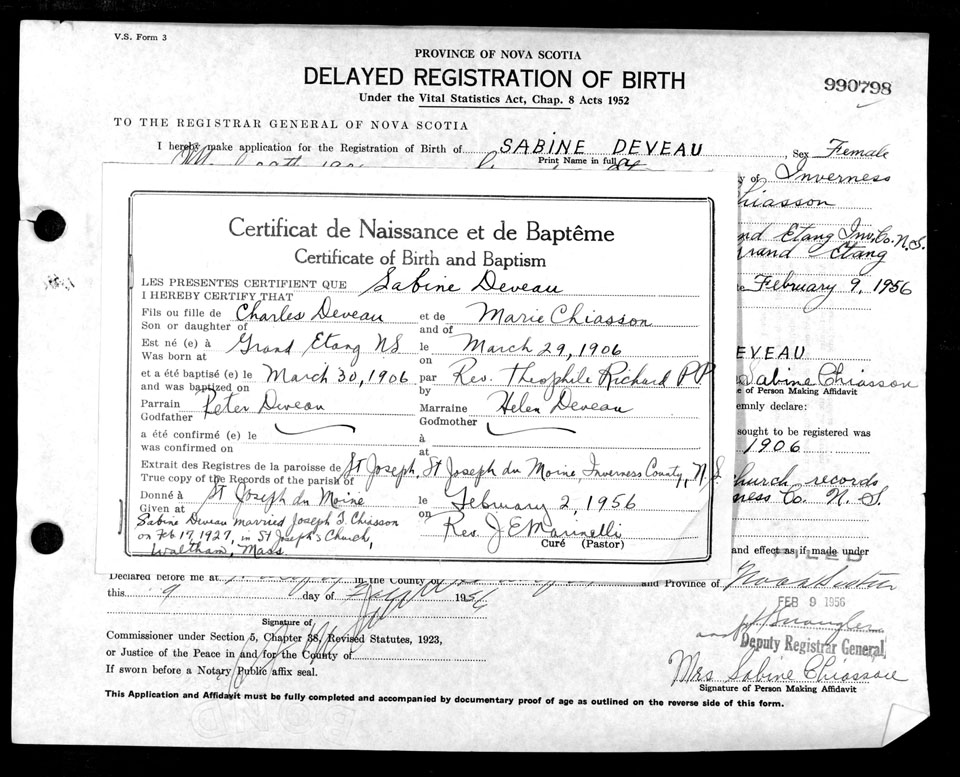 V.S. Form 3
PROVINCE OF NOVA SCOTIA
DELAYED REGISTRATION OF BIRTH
Under the Vital Statistics Act, Chap. 8 Acts 1952
990798
TO THE REGISTRAR GENERAL OF NOVA SCOTIA
I hereby make application for the Registration of Birth of SABINE DEVEAU, Sex Female
Print Name in full
Inverness
Chiasson
Grand Etang Inv. Co. N.S.
Grand Etang
February 9, 1956
DEVEAU
Sabine Chiasson
of Person Making Affidavit
emnly declare:
sought to be registered was
1906
church records
ness Co. N. S.
and effect as if made under
Certificat de Naissance et de Baptême
Certificate of Birth and Baptism
LES PRESENTES CERTIFIENT QUE Sabine Deveau
I HEREBY CERTIFY THAT
Fils ou fille de Charles Deveau et de Marie Chiasson
Son or daughter of and of
Est né (e) à Grand Etang NS le March 29, 1906
Was born at on
et a été baptisé (e) le March 30, 1906 par Rev. Theophile Richard PP
and was baptized on by
Parrain Peter Deveau Marraine Helen Deveau
Godfather Godmother
a été confirmé (e) le à
was confirmed on at
Extrait des Registres de la paroisse de St Joseph, St Joseph du Moine, Inverness County, N.S.
True copy of the Records of the parish of
Donné à St Joseph du Moine le February 2, 1956
Given at on
Sabine Deveau married Joseph T. Chiasson
on Feb 17, 1927, in St Joseph's Church,
Waltham, Mass.
Rev. J E Marinelli
Curé (Pastor)
Declared before me at in the County of and Province of Nova Scotia
this 9 day of 1956
FILED
FEB 9 1956
Deputy Registrar General
Signature of
Commissioner under Section 5, Chapter 38, Revised Statutes, 1923,
or Justice of the Peace in and for the County of
If sworn before a Notary Public affix seal.
Mrs Sabine Chiasson
Signature of Person Making Affidavit
This Application and Affidavit must be fully completed and accompanied by documentary proof of age as outlined on the reverse side of this form.